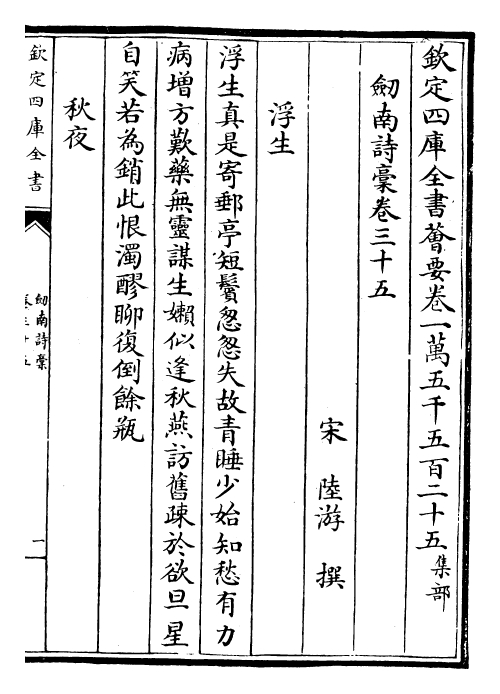 欽定四庫全書薈要卷一萬五千五百二十五集部
劒南詩稾卷三十五
宋 陸游 撰
浮生
浮生真是寄郵亭短鬢怱怱失故青睡少始知愁有力
病增方歎藥無靈謀生嬾似逢秋燕訪舊疎於欲旦星
自笑若為銷此恨濁醪聊復倒餘瓶
秋夜
欽定四庫全書
劒南詩稾
卷三十五
一